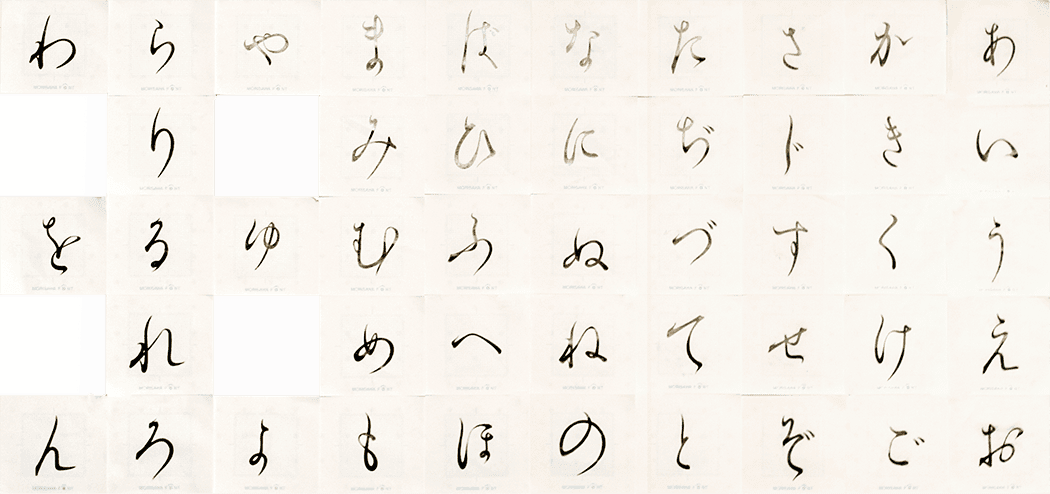 あいうえお
かきくけご
さじすせぞ
たぢづてと
なにぬねの
ばひふへほ
まみむめも
やゆよ
らりるれろ
わをん